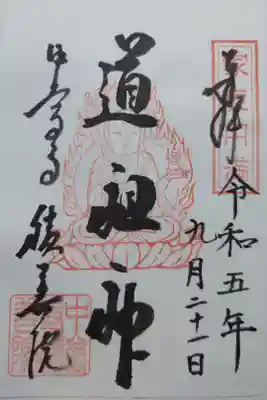 奉拝 令和五年
九月二十一日
道祖神
中尊寺 積善院